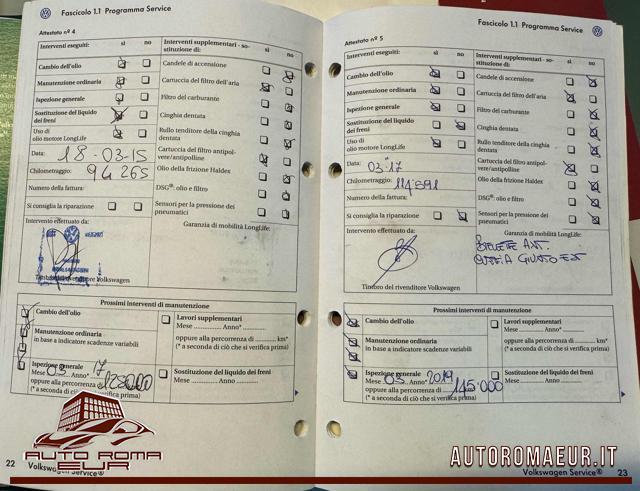 Fascicolo 1.1 Programma Service
Attestato nº 4
Interventi eseguiti: sì no
Cambio dell'olio
Manutenzione ordinaria
Ispezione generale
Sostituzione del liquido
dei freni
Uso di
olio motore LongLife
Data: 18-03-15
Chilometraggio: 94 265
Numero della fattura:
Si consiglia la riparazione
Intervento effettuato da:
Timbro del rivenditore Volkswagen
Interventi supplementari - so-
stituzione di: sì no
Candele di accensione
Cartuccia del filtro dell'aria
Filtro del carburante
Cinghia dentata
Rullo tenditore della cinghia
dentata
Cartuccia del filtro antipol-
vere/antipolline
Olio della frizione Haldex
DSG®: olio e filtro
Sensori per la pressione dei
pneumatici
Garanzia di mobilità LongLife:
Prossimi interventi di manutenzione
Cambio dell'olio
Manutenzione ordinaria
in base a indicatore scadenze variabili
Ispezione generale
Mese 03 Anno* 17
oppure alla percorrenza di
(* a seconda di ciò che si verifica prima)
Lavori supplementari
Mese ............ Anno* ............
oppure alla percorrenza di ............ km*
(* a seconda di ciò che si verifica prima)
Sostituzione del liquido dei freni
Mese ............ Anno ............
22 Volkswagen Service®
AUTO ROMA
EUR
Fascicolo 1.1 Programma Service
Attestato nº 5
Interventi eseguiti: sì no
Cambio dell'olio
Manutenzione ordinaria
Ispezione generale
Sostituzione del liquido
dei freni
Uso di
olio motore LongLife
Data: 03-17
Chilometraggio: 114'891
Numero della fattura:
Si consiglia la riparazione
Intervento effettuato da:
Timbro del rivenditore Volkswagen
Interventi supplementari - so-
stituzione di: sì no
Candele di accensione
Cartuccia del filtro dell'aria
Filtro del carburante
Cinghia dentata
Rullo tenditore della cinghia
dentata
Cartuccia del filtro antipol-
vere/antipolline
Olio della frizione Haldex
DSG®: olio e filtro
Sensori per la pressione dei
pneumatici
Garanzia di mobilità LongLife:
BIELETTE ANT.
CUFFIA GIUNTO EST
Prossimi interventi di manutenzione
Cambio dell'olio
Manutenzione ordinaria
in base a indicatore scadenze variabili
Ispezione generale
Mese 03 Anno* 2019
oppure alla percorrenza di 145'000
(* a seconda di ciò che si verifica prima)
Lavori supplementari
Mese ............ Anno* ............
oppure alla percorrenza di ............ km*
(* a seconda di ciò che si verifica prima)
Sostituzione del liquido dei freni
Mese ............ Anno ............
AUTOROMAEUR.IT
Volkswagen Service® 23